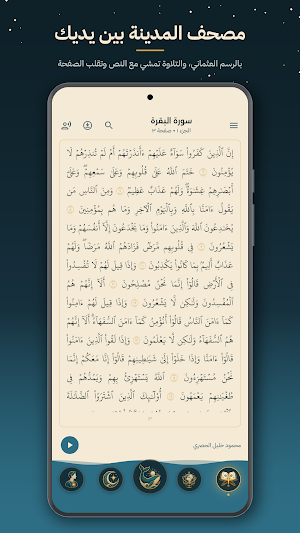 مصحف المدينة بين يديك
بالرسم العثماني، والتلاوة تمشي مع النص وتقلب الصفحة
سورة البقرة
الجزء ١ • صفحة ٣
إِنَّ ٱلَّذِينَ كَفَرُوا۟ سَوَآءٌ عَلَيْهِمْ ءَأَنذَرْتَهُمْ أَمْ لَمْ تُنذِرْهُمْ لَا
يُؤْمِنُونَ ۝ خَتَمَ ٱللَّهُ عَلَىٰ قُلُوبِهِمْ وَعَلَىٰ سَمْعِهِمْ ۖ وَعَلَىٰٓ
أَبْصَـٰرِهِمْ غِشَـٰوَةٌ ۖ وَلَهُمْ عَذَابٌ عَظِيمٌ ۝ وَمِنَ ٱلنَّاسِ مَن
يَقُولُ ءَامَنَّا بِٱللَّهِ وَبِٱلْيَوْمِ ٱلْـَٔاخِرِ وَمَا هُم بِمُؤْمِنِينَ ۝
يُخَـٰدِعُونَ ٱللَّهَ وَٱلَّذِينَ ءَامَنُوا۟ وَمَا يَخْدَعُونَ إِلَّآ أَنفُسَهُمْ وَمَا
يَشْعُرُونَ ۝ فِى قُلُوبِهِم مَّرَضٌ فَزَادَهُمُ ٱللَّهُ مَرَضًا ۖ وَلَهُمْ
عَذَابٌ أَلِيمٌۢ بِمَا كَانُوا۟ يَكْذِبُونَ ۝ وَإِذَا قِيلَ لَهُمْ لَا تُفْسِدُوا۟
فِى ٱلْأَرْضِ قَالُوٓا۟ إِنَّمَا نَحْنُ مُصْلِحُونَ ۝ أَلَآ إِنَّهُمْ هُمُ
ٱلْمُفْسِدُونَ وَلَـٰكِن لَّا يَشْعُرُونَ ۝ وَإِذَا قِيلَ لَهُمْ ءَامِنُوا۟
كَمَآ ءَامَنَ ٱلنَّاسُ قَالُوٓا۟ أَنُؤْمِنُ كَمَآ ءَامَنَ ٱلسُّفَهَآءُ ۗ أَلَآ إِنَّهُمْ
هُمُ ٱلسُّفَهَآءُ وَلَـٰكِن لَّا يَعْلَمُونَ ۝ وَإِذَا لَقُوا۟ ٱلَّذِينَ ءَامَنُوا۟
قَالُوٓا۟ ءَامَنَّا وَإِذَا خَلَوْا۟ إِلَىٰ شَيَـٰطِينِهِمْ قَالُوٓا۟ إِنَّا مَعَكُمْ إِنَّمَا
نَحْنُ مُسْتَهْزِءُونَ ۝ ٱللَّهُ يَسْتَهْزِئُ بِهِمْ وَيَمُدُّهُمْ فِى
طُغْيَـٰنِهِمْ يَعْمَهُونَ ۝ أُو۟لَـٰٓئِكَ ٱلَّذِينَ ٱشْتَرَوُا۟ ٱلضَّلَـٰلَةَ
محمود خليل الحصري